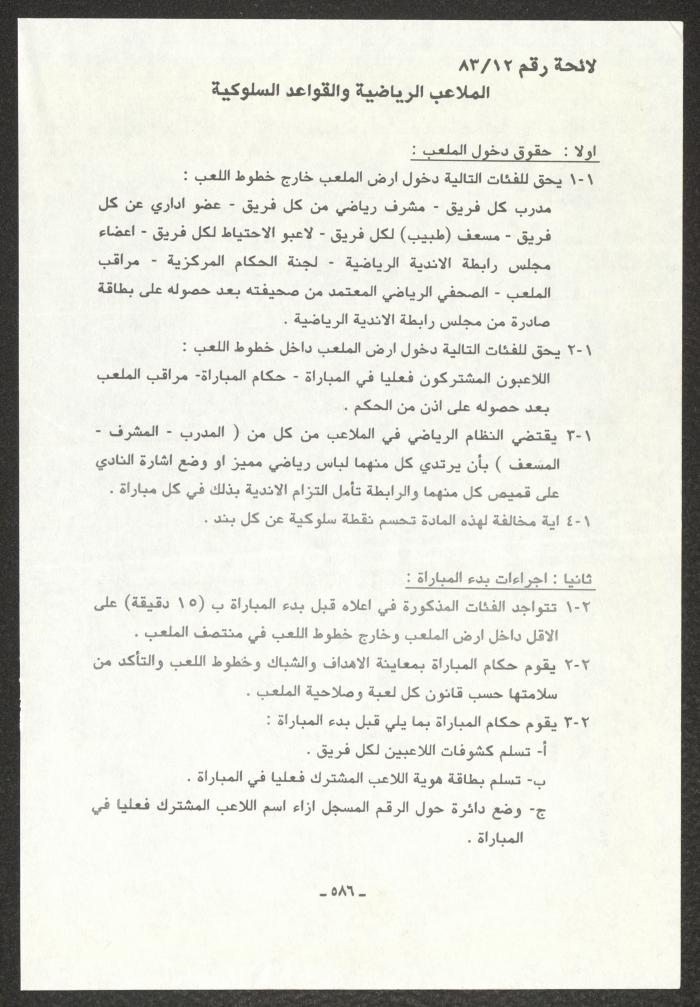 لائحة رقم ٨٣/١٢
الملاعب الرياضية والقواعد السلوكية
اولا : حقوق دخول الملعب :
١-١ يحق للفئات التالية دخول ارض الملعب خارج خطوط اللعب :
مدرب كل فريق - مشرف رياضي من كل فريق - عضو اداري عن كل
فريق - مسعف (طبيب) لكل فريق - لاعبو الاحتياط لكل فريق - اعضاء
مجلس رابطة الاندية الرياضية - لجنة الحكام المركزية - مراقب
الملعب - الصحفي الرياضي المعتمد من صحيفته بعد حصوله على بطاقة
صادرة من مجلس رابطة الاندية الرياضية .
١-٢ يحق للفئات التالية دخول ارض الملعب داخل خطوط اللعب :
اللاعبون المشتركون فعليا في المباراة - حكام المباراة- مراقب الملعب
بعد حصوله على اذن من الحكم .
١-٣ يقتضي النظام الرياضي في الملاعب من كل من ( المدرب - المشرف -
المسعف ) بأن يرتدي كل منهما لباس رياضي مميز او وضع اشارة النادي
على قميص كل منهما والرابطة تأمل التزام الاندية بذلك في كل مباراة .
١-٤ اية مخالفة لهذه المادة تحسم نقطة سلوكية عن كل بند .
ثانيا : اجراءات بدء المباراة :
٢-١ تتواجد الفئات المذكورة في اعلاه قبل بدء المباراة ب (١٥ دقيقة) على
الاقل داخل ارض الملعب وخارج خطوط اللعب في منتصف الملعب .
٢-٢ يقوم حكام المباراة بمعاينة الاهداف والشباك وخطوط اللعب والتأكد من
سلامتها حسب قانون كل لعبة وصلاحية الملعب .
٢-٣ يقوم حكام المباراة بما يلي قبل بدء المباراة :
أ- تسلم كشوفات اللاعبين لكل فريق .
ب- تسلم بطاقة هوية اللاعب المشترك فعليا في المباراة .
ج- وضع دائرة حول الرقم المسجل ازاء اسم اللاعب المشترك فعليا في
المباراة .
ـ ٥٨٦ ـ